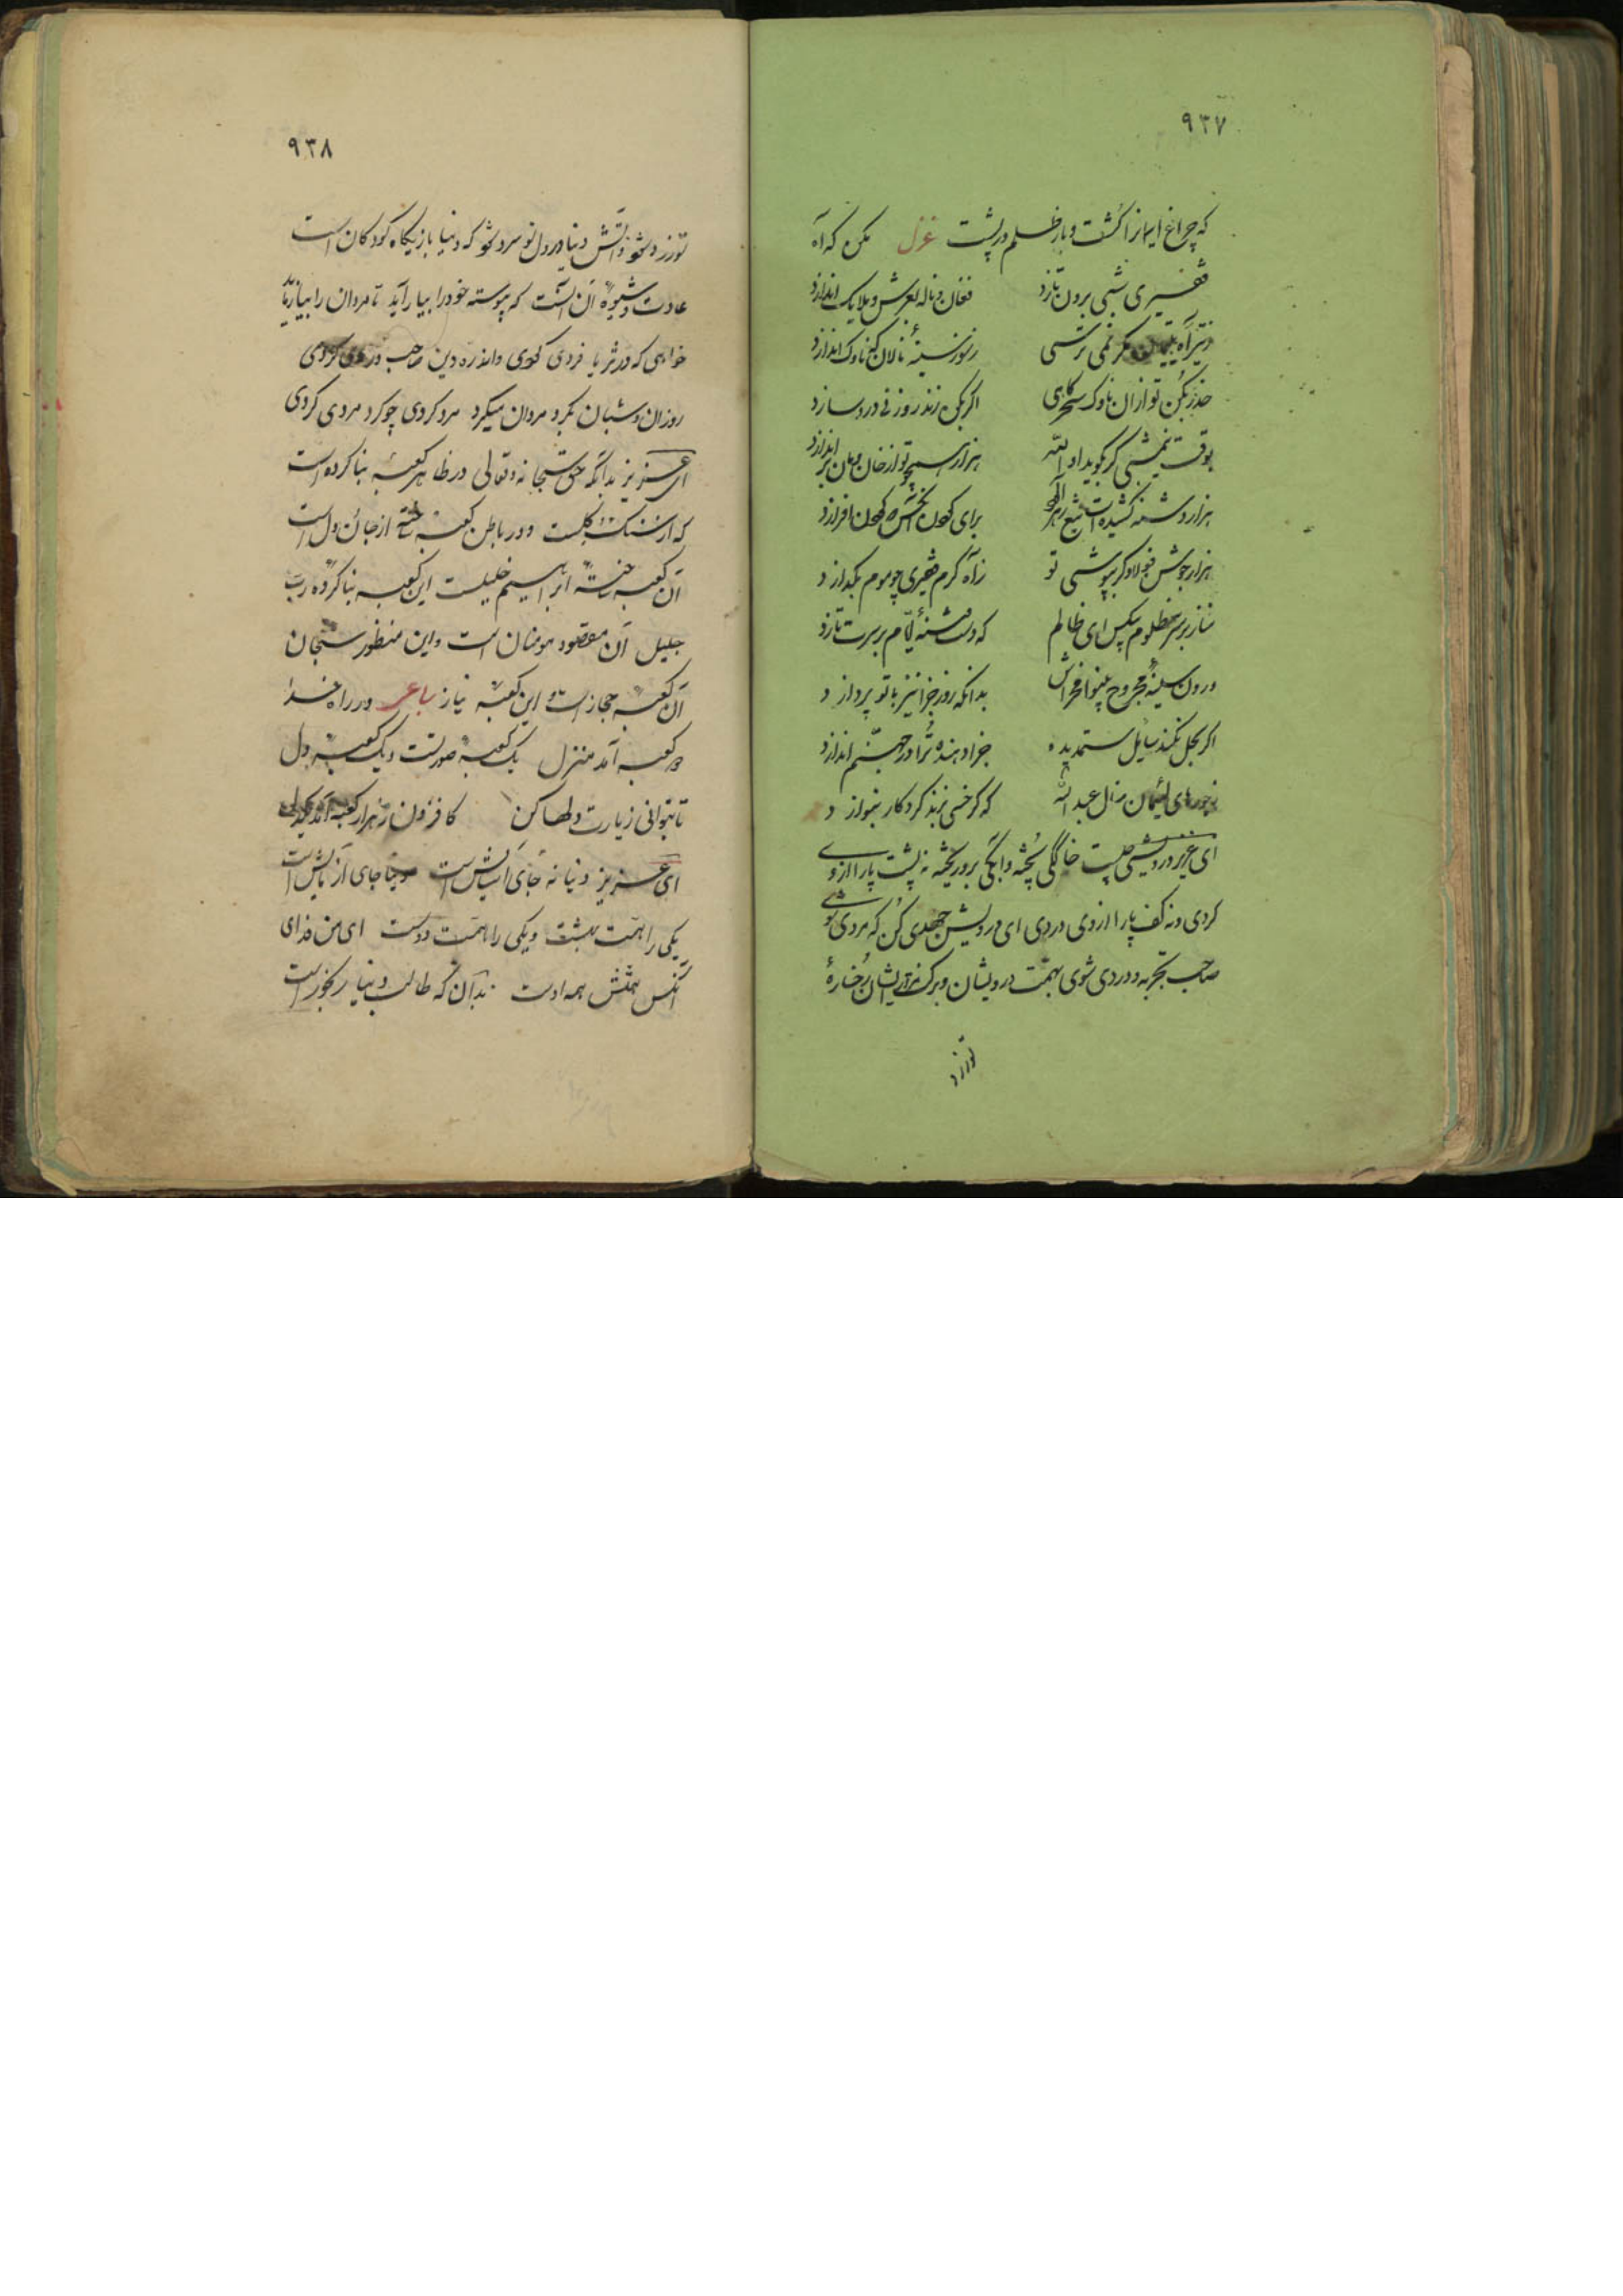 ۹۳۷
که چراغ ایمانرا کشت و بار ظلم در پشت غزل مکن که آه
فقیری شبی برون تازد فغان و ناله بعرش و ملایک اندازد
ز تیر آه یتیمان مگر نمی ترسی ز سوز سینهٔ نالان که ناوک اندازد
حذر بکن تو ازان ناوک سحرگاهی اگر بکس زند روزنی در و سازد
بوقت نیمشبی گر بگوید او الله هزار همچو تو از خان و مان بر اندازد
هزار دشنه کشیده است برای
هزار جوشن فولاد گر بپوشی تو ز آه گرم فقیری چو موم بگدازد
متاز بر سر مظلوم بیکس ای ظالم که دست فتنهٔ ایام بر سرت تازد
درون سینهٔ مجروح بینوا مخراش بدانکه روز جزا نیز با تو پردازد
اگر بحل نکند سایل ستمدیده جزا دهنده ترا در جهنم اندازد
ز جورهای لئیمان منال عبد الله که گر خسی بزند کردگار بنوازد
ای عزیز درویشی چیست خاکگی بیخته و آبگی برو ریخته نه پشت پا را ازو
کردی و نه کف پا را از وی دردی ای درویش جهدی کن که مردی شوی
صاحب تجربه و دردی شوی بهمت درویشان و برگ نزار ایشان رخسارهٔ
تو زرد
۹۳۸
تو زرد شود و آتش دنیا در دل تو سرد شود که دنیا بازیگاه کودکان است
عادت و شیوهٔ آن آنست که پیوسته خود را بیاراید تا مردان را بیازماید
خواهی که در شر یا فردی گردی واندر ره دین صاحب دردی گردی
روزان و شبان بگرد مردان میگرد مرد گردی چو گرد مردی گردی
ای عزیز بدانکه حق سبحانه و تعالی در ظاهر کعبهٔ بنا کرده است
که از سنگ و گلست و در باطن کعبه ساخته از جان و دل است
آن کعبه ساختهٔ ابراهیم خلیلست این کعبه بنا کردهٔ رب
جلیل آن مقصود مومنان است و این منظور سبحان
آن کعبه مجاز است و این کعبهٔ نیاز رباعی در راه خدا
دو کعبه آمد منزل یک کعبهٔ صورتست و یک کعبهٔ دل
تا بتوانی زیارت دلها کن کافزون ز هزار کعبه آمد یکدل
ای عزیز دنیا نه جای آسایش است دنیا جای آزمایش است
یکی را همت بهشت و یکی را همت دوست ای من فدای
آنکس همتش همه اوست بدان که طالب دنیا رنجورست